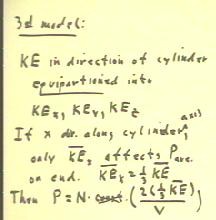 3d model:
KE in direction of cylinder
equipartioned into
KE_x, KE_y, KE_z
If x dir. along cylinder axis,
only K̅E̅_x affects P_ave.
on end. K̅E̅_x = 1/3 K̅E̅
Then P = N · (2(1/3 K̅E̅)/V)